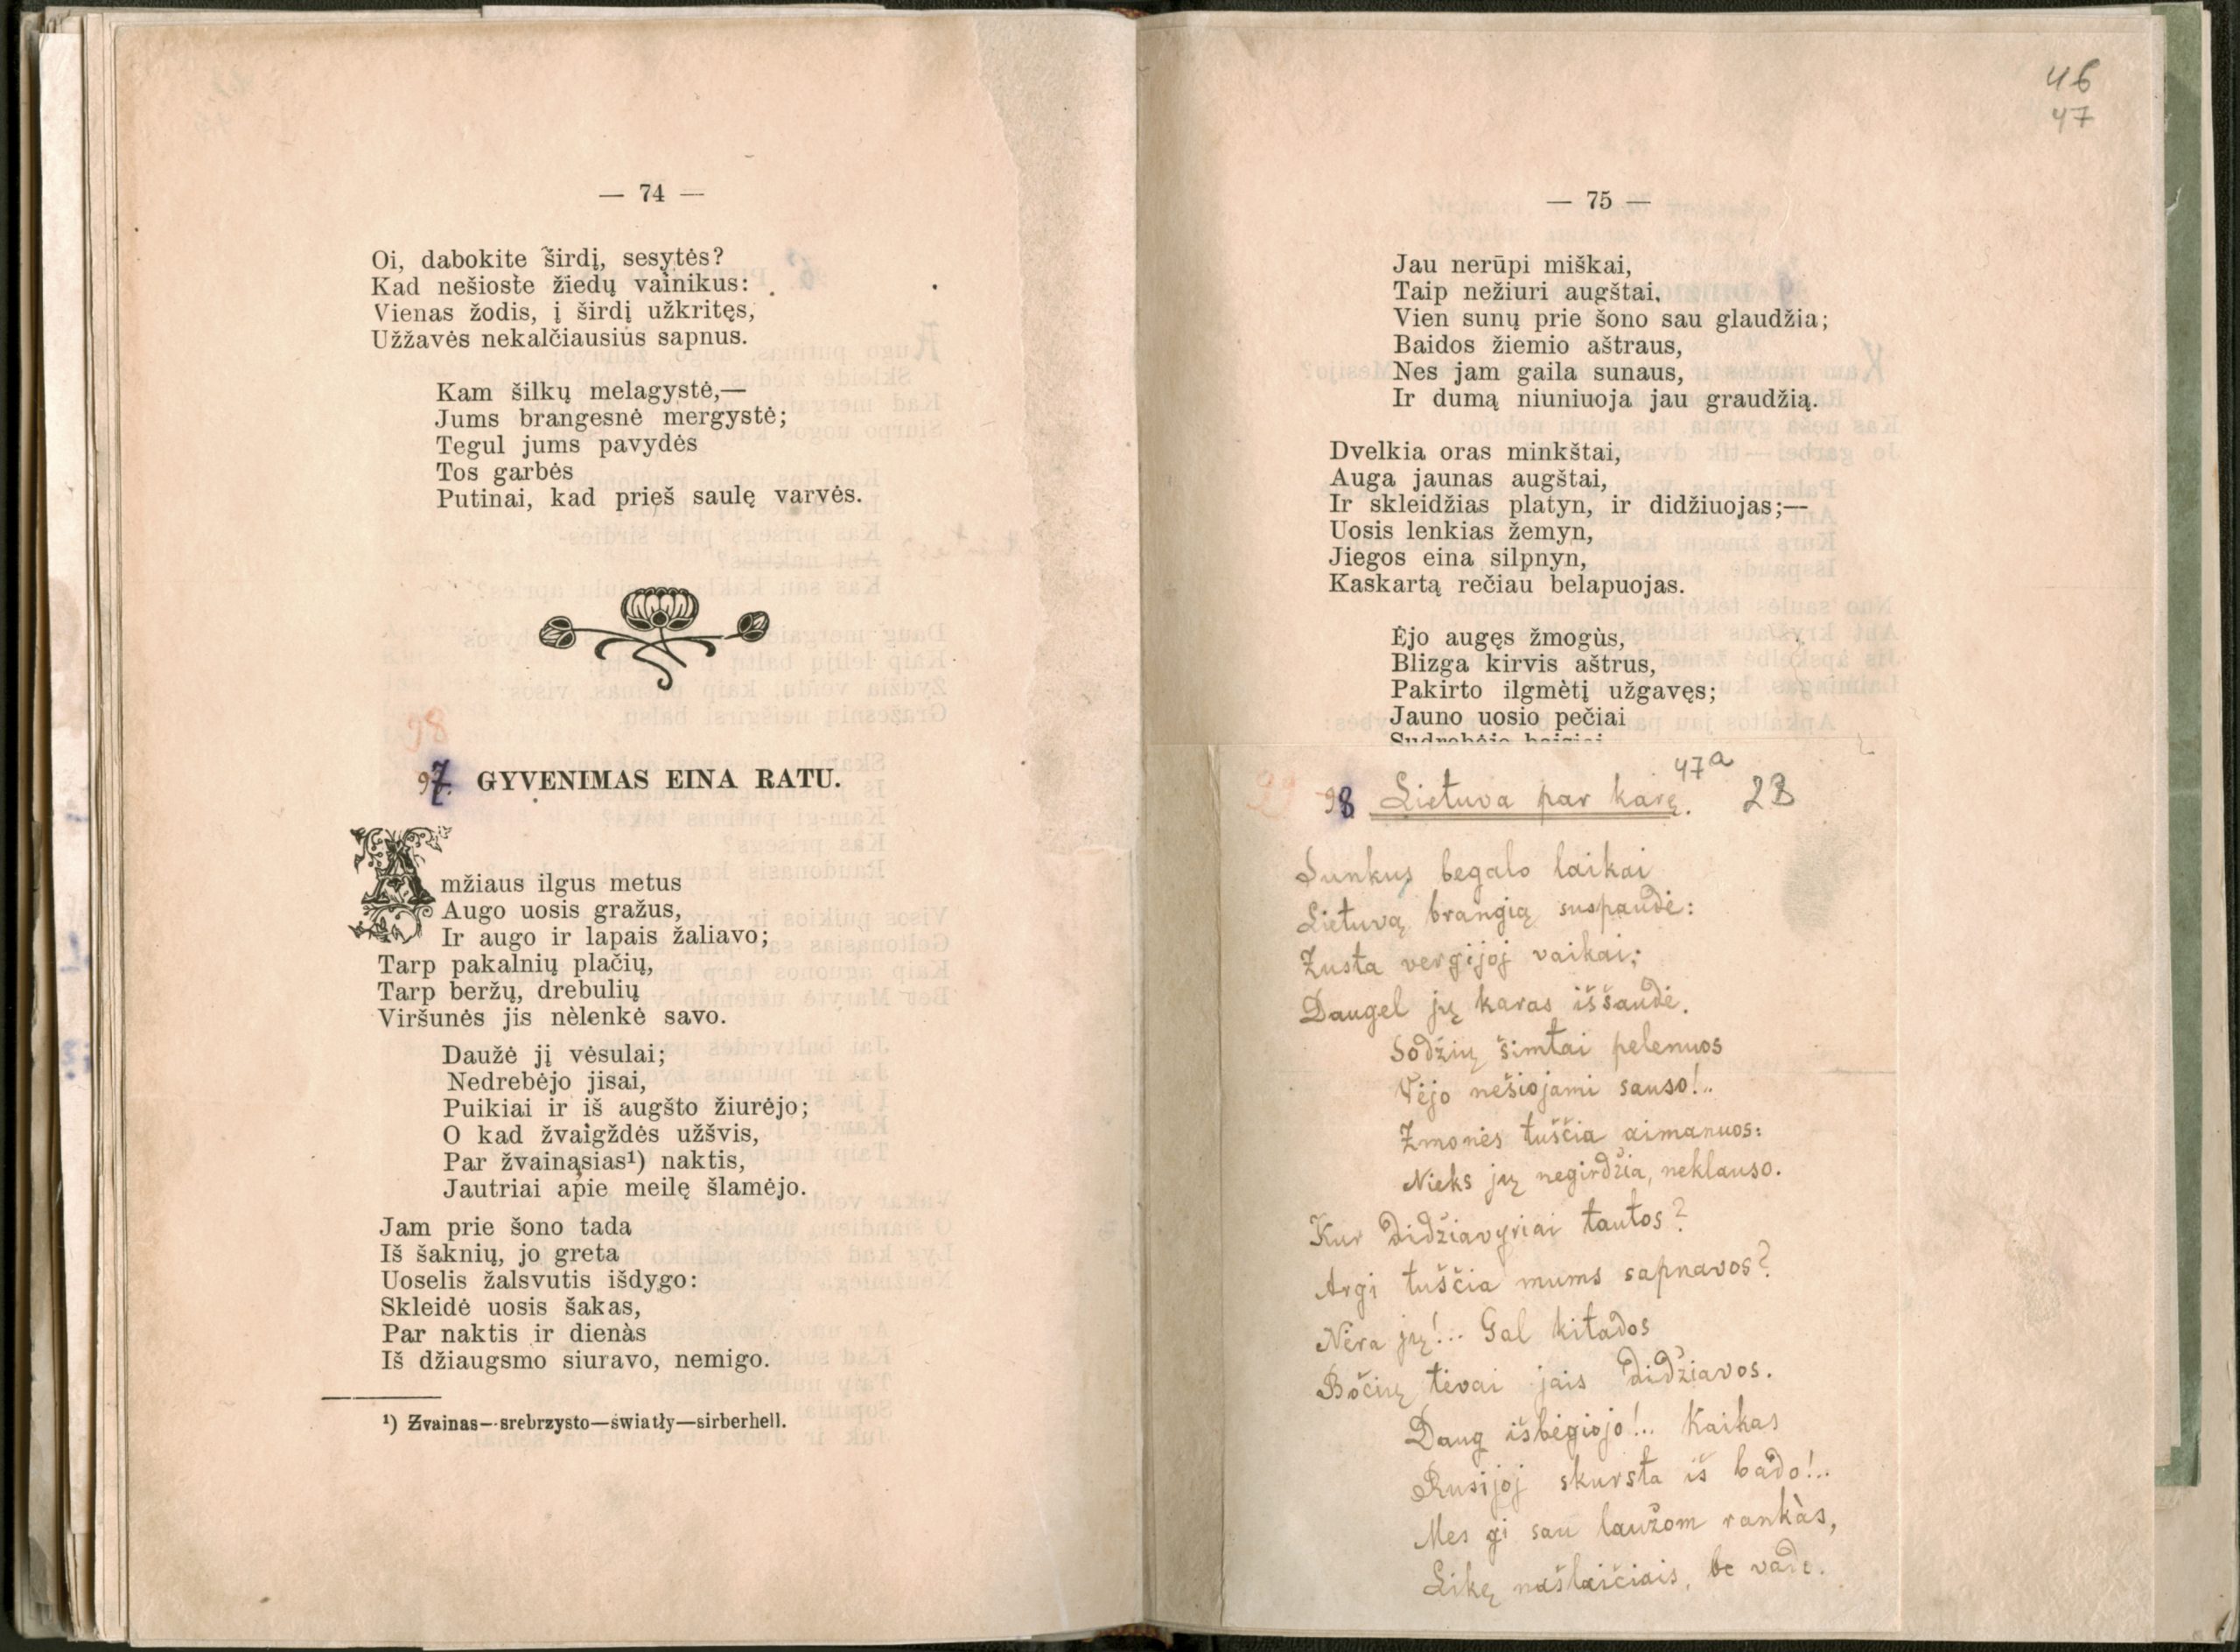 — 74 —
Oi, dabokite širdį, sesytės?
Kad nešioste žiedų vainikus:
Vienas žodis, į širdį užkritęs,
Užžavės nekalčiausius sapnus.
Kam šilkų melagystė,—
Jums brangesnė mergystė;
Tegul jums pavydės
Tos garbės
Putinai, kad prieš saulę varvės.
98
97. GYVENIMAS EINA RATU.
Amžiaus ilgus metus
Augo uosis gražus,
Ir augo ir lapais žaliavo;
Tarp pakalnių plačių,
Tarp beržų, drebulių
Viršunės jis nèlenkė savo.
Daužė jį vėsulai;
Nedrebėjo jisai,
Puikiai ir iš augšto žiurėjo;
O kad žvaigždės užšvis,
Par žvainąsias¹) naktis,
Jautriai apie meilę šlamėjo.
Jam prie šono tada
Iš šaknių, jo greta
Uoselis žalsvutis išdygo:
Skleidė uosis šakas,
Par naktis ir dienàs
Iš džiaugsmo siuravo, nemigo.
¹) Žvainas—srebrzysto—światły—sirberhell.
46
47
— 75 —
Jau nerūpi miškai,
Taip nežiuri augštai,
Vien sunų prie šono sau glaudžia;
Baidos žiemio aštraus,
Nes jam gaila sunaus,
Ir dumą niuniuoja jau graudžią.
Dvelkia oras minkštai,
Auga jaunas augštai,
Ir skleidžias platyn, ir didžiuojas;—
Uosis lenkias žemyn,
Jiegos eina silpnyn,
Kaskartą rečiau belapuojas.
Ėjo augęs žmogùs,
Blizga kirvis aštrus,
Pakirto ilgmètį užgavęs;
Jauno uosio pečiai
Sudrebėjo baisiai
47a
99 98 Lietuva par karę. 23
Sunkus begalo laikai
Lietuvą brangią suspaudė:
Žusta vergijoj vaikai;
Daugel jų karas iššaudė.
Sodžių šimtai pelenuos
Vėjo nešiojami sauso!..
Žmonės tuščia aimanuos:
Nieks jų negirdžia, neklauso.
Kur didžiavyriai tautos?
Argi tuščia mums sapnavos?
Nėra jų!.. Gal kitados
Bočių tėvai jais didžiavos.
Daug išbėgiojo!.. Kaikas
Rusijoj skursta iš bado!..
Mes gi sau laužom rankàs,
Likę našlaičiais, be vado.